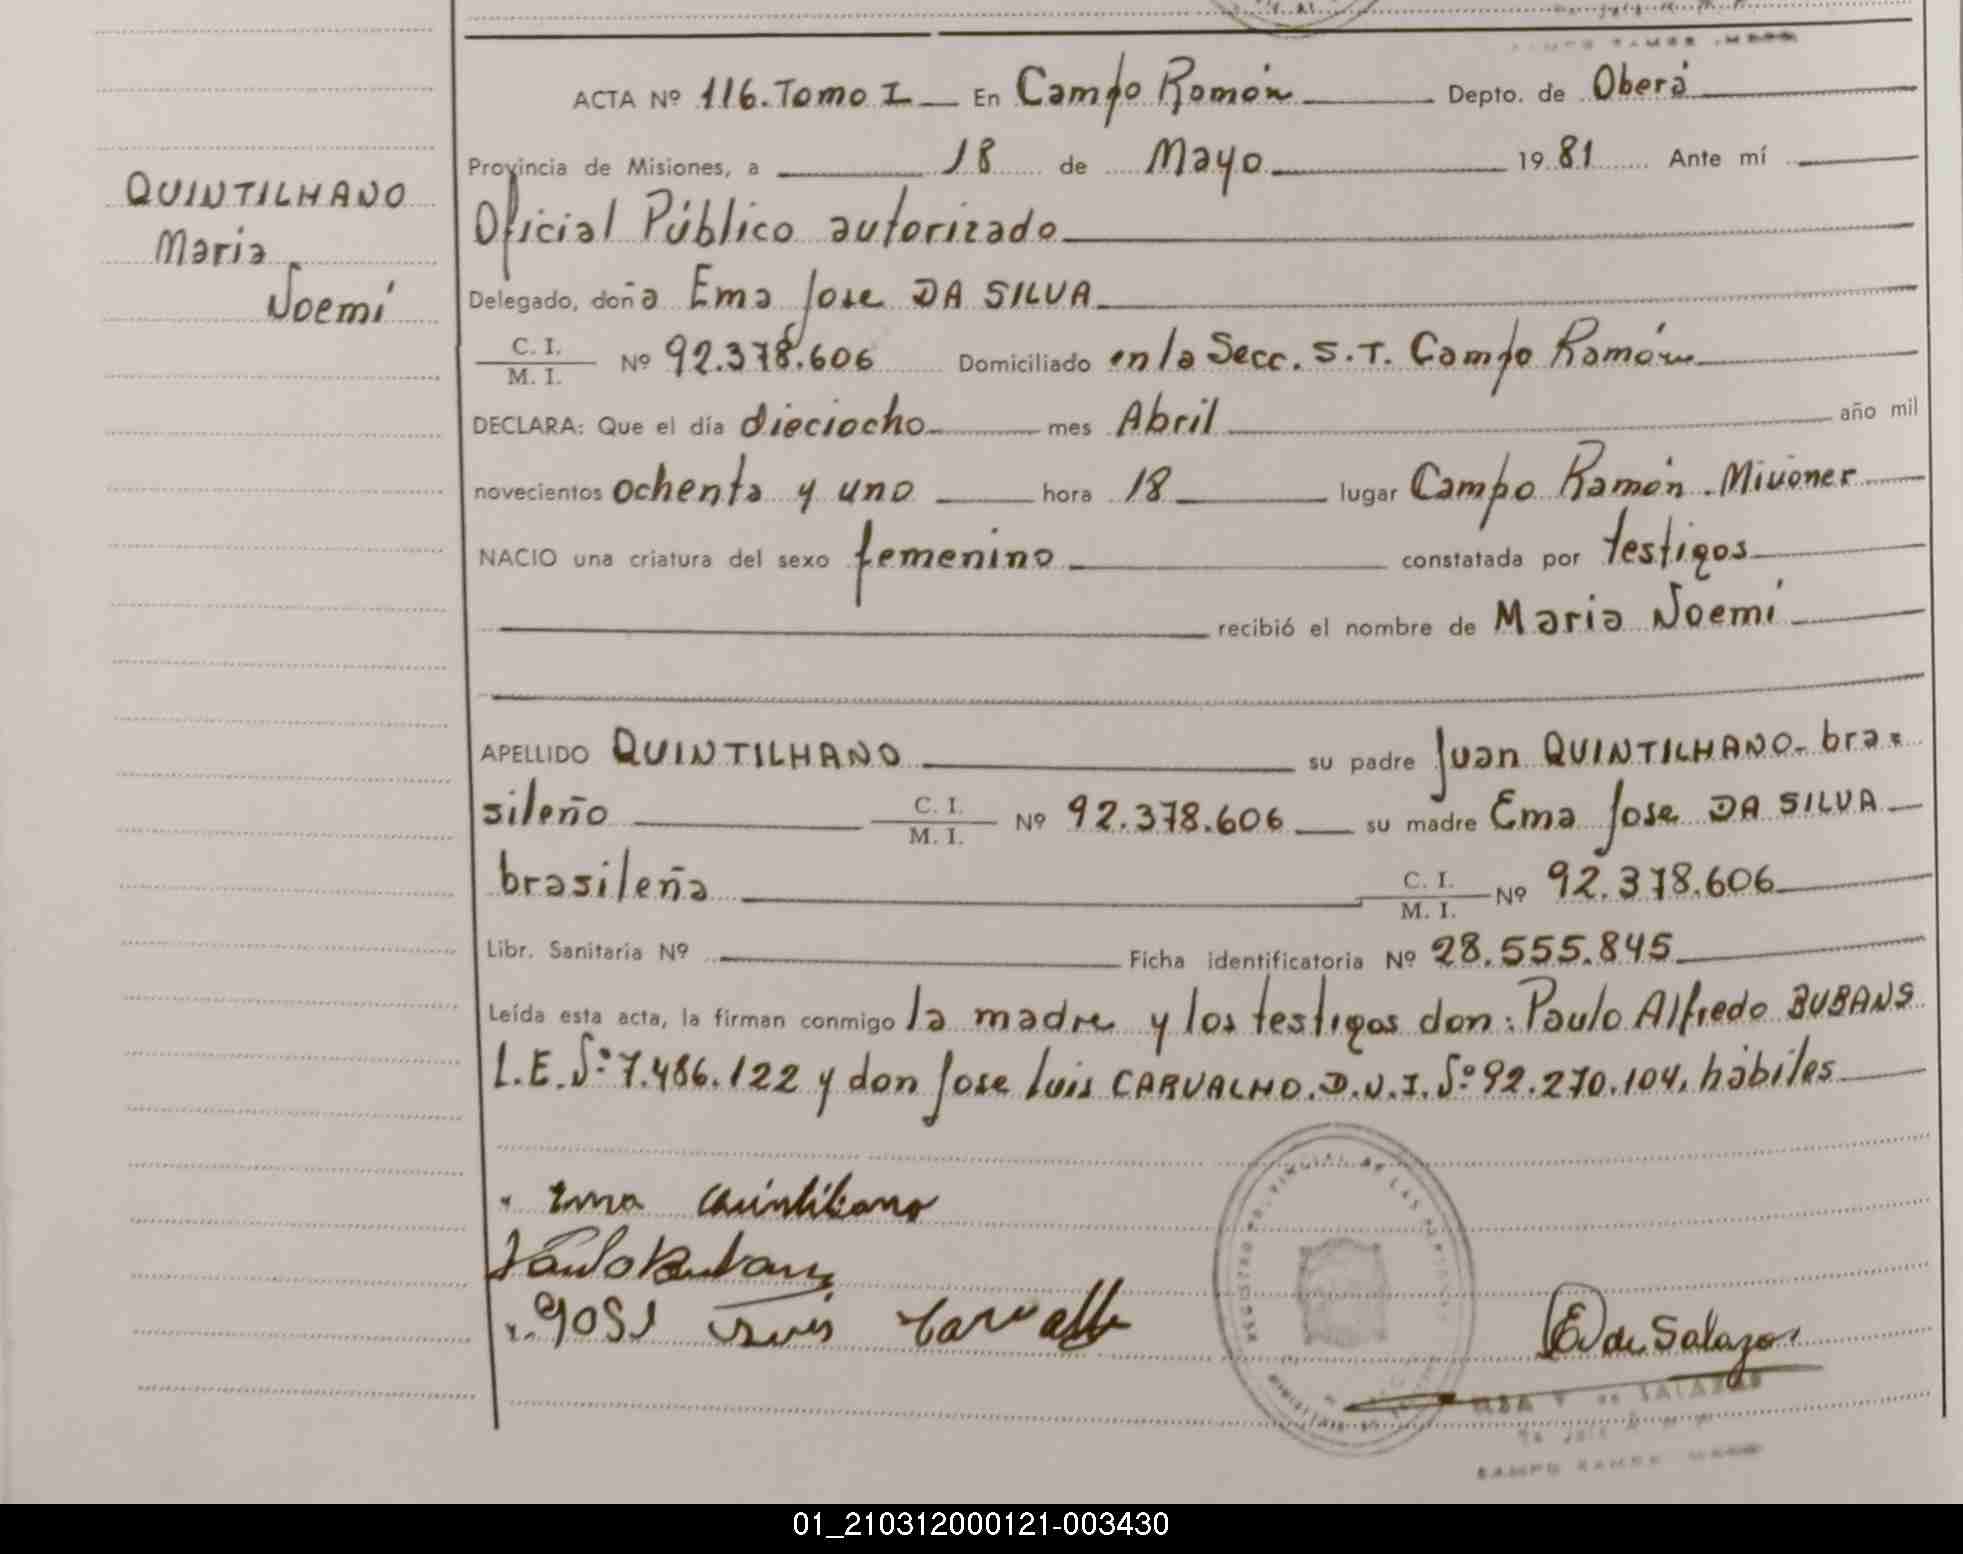 QUINTILHANO
Maria
Noemí
ACTA Nº 116. Tomo I En Campo Ramón Depto. de Oberá
Provincia de Misiones, a 18 de Mayo 19 81 Ante mí
Oficial Público autorizado
Delegado, doña Ema Jose DA SILVA
C. I.
M. I. Nº 92.378.606 Domiciliado en la Secc. S.T. Campo Ramón
DECLARA: Que el día dieciocho mes Abril año mil
novecientos ochenta y uno hora 18 lugar Campo Ramón. Misiones
NACIO una criatura del sexo femenino constatada por testigos
recibió el nombre de Maria Noemí
APELLIDO QUINTILHANO su padre Juan QUINTILHANO- bra=
sileño C. I. M. I. Nº 92.378.606 su madre Ema Jose DA SILVA
brasileña C. I. M. I. Nº 92.378.606
Libr. Sanitaria Nº Ficha identificatoria Nº 28.555.845
Leída esta acta, la firman conmigo la madre y los testigos don: Paulo Alfredo BUBANS
L.E. Nº 7.486.122 y don Jose Luis CARVALHO. D.N.I. Nº 92.270.104, hábiles
Ema Quintiliano
Paulo Bubans
José Luis Carvalho
E V de Salazar
DE SALAZAR
CAMPO RAMON
01_210312000121-003430